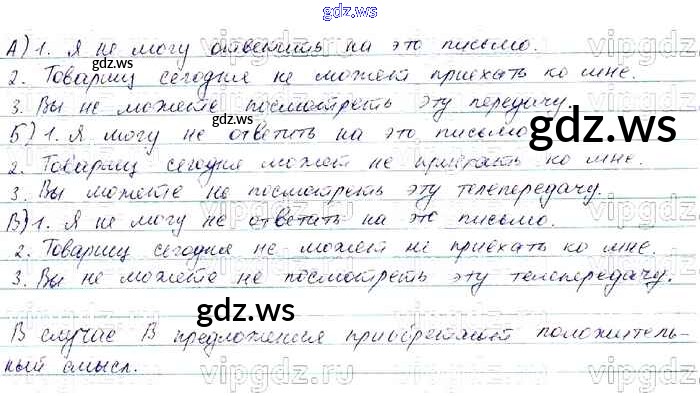 gdz.ws
А) 1. Я не могу ответить на это письмо.
2. Товарищ сегодня не может приехать ко мне.
3. Вы не можете посмотреть эту передачу.
Б) 1. Я могу не ответить на это письмо
2. Товарищ сегодня может не приехать ко мне.
3. Вы можете не посмотреть эту телепередачу.
В) 1. Я не могу не ответить на это письмо.
2. Товарищ сегодня не может не приехать ко мне.
3. Вы не можете не посмотреть эту телепередачу.
В случае В предложения приобретают положитель-
ный смысл.
gdz.ws
gdz.ws
gdz.ws
gdz.ws
gdz.ws
gdz.ws
vipgdz.ru
vipgdz.ru